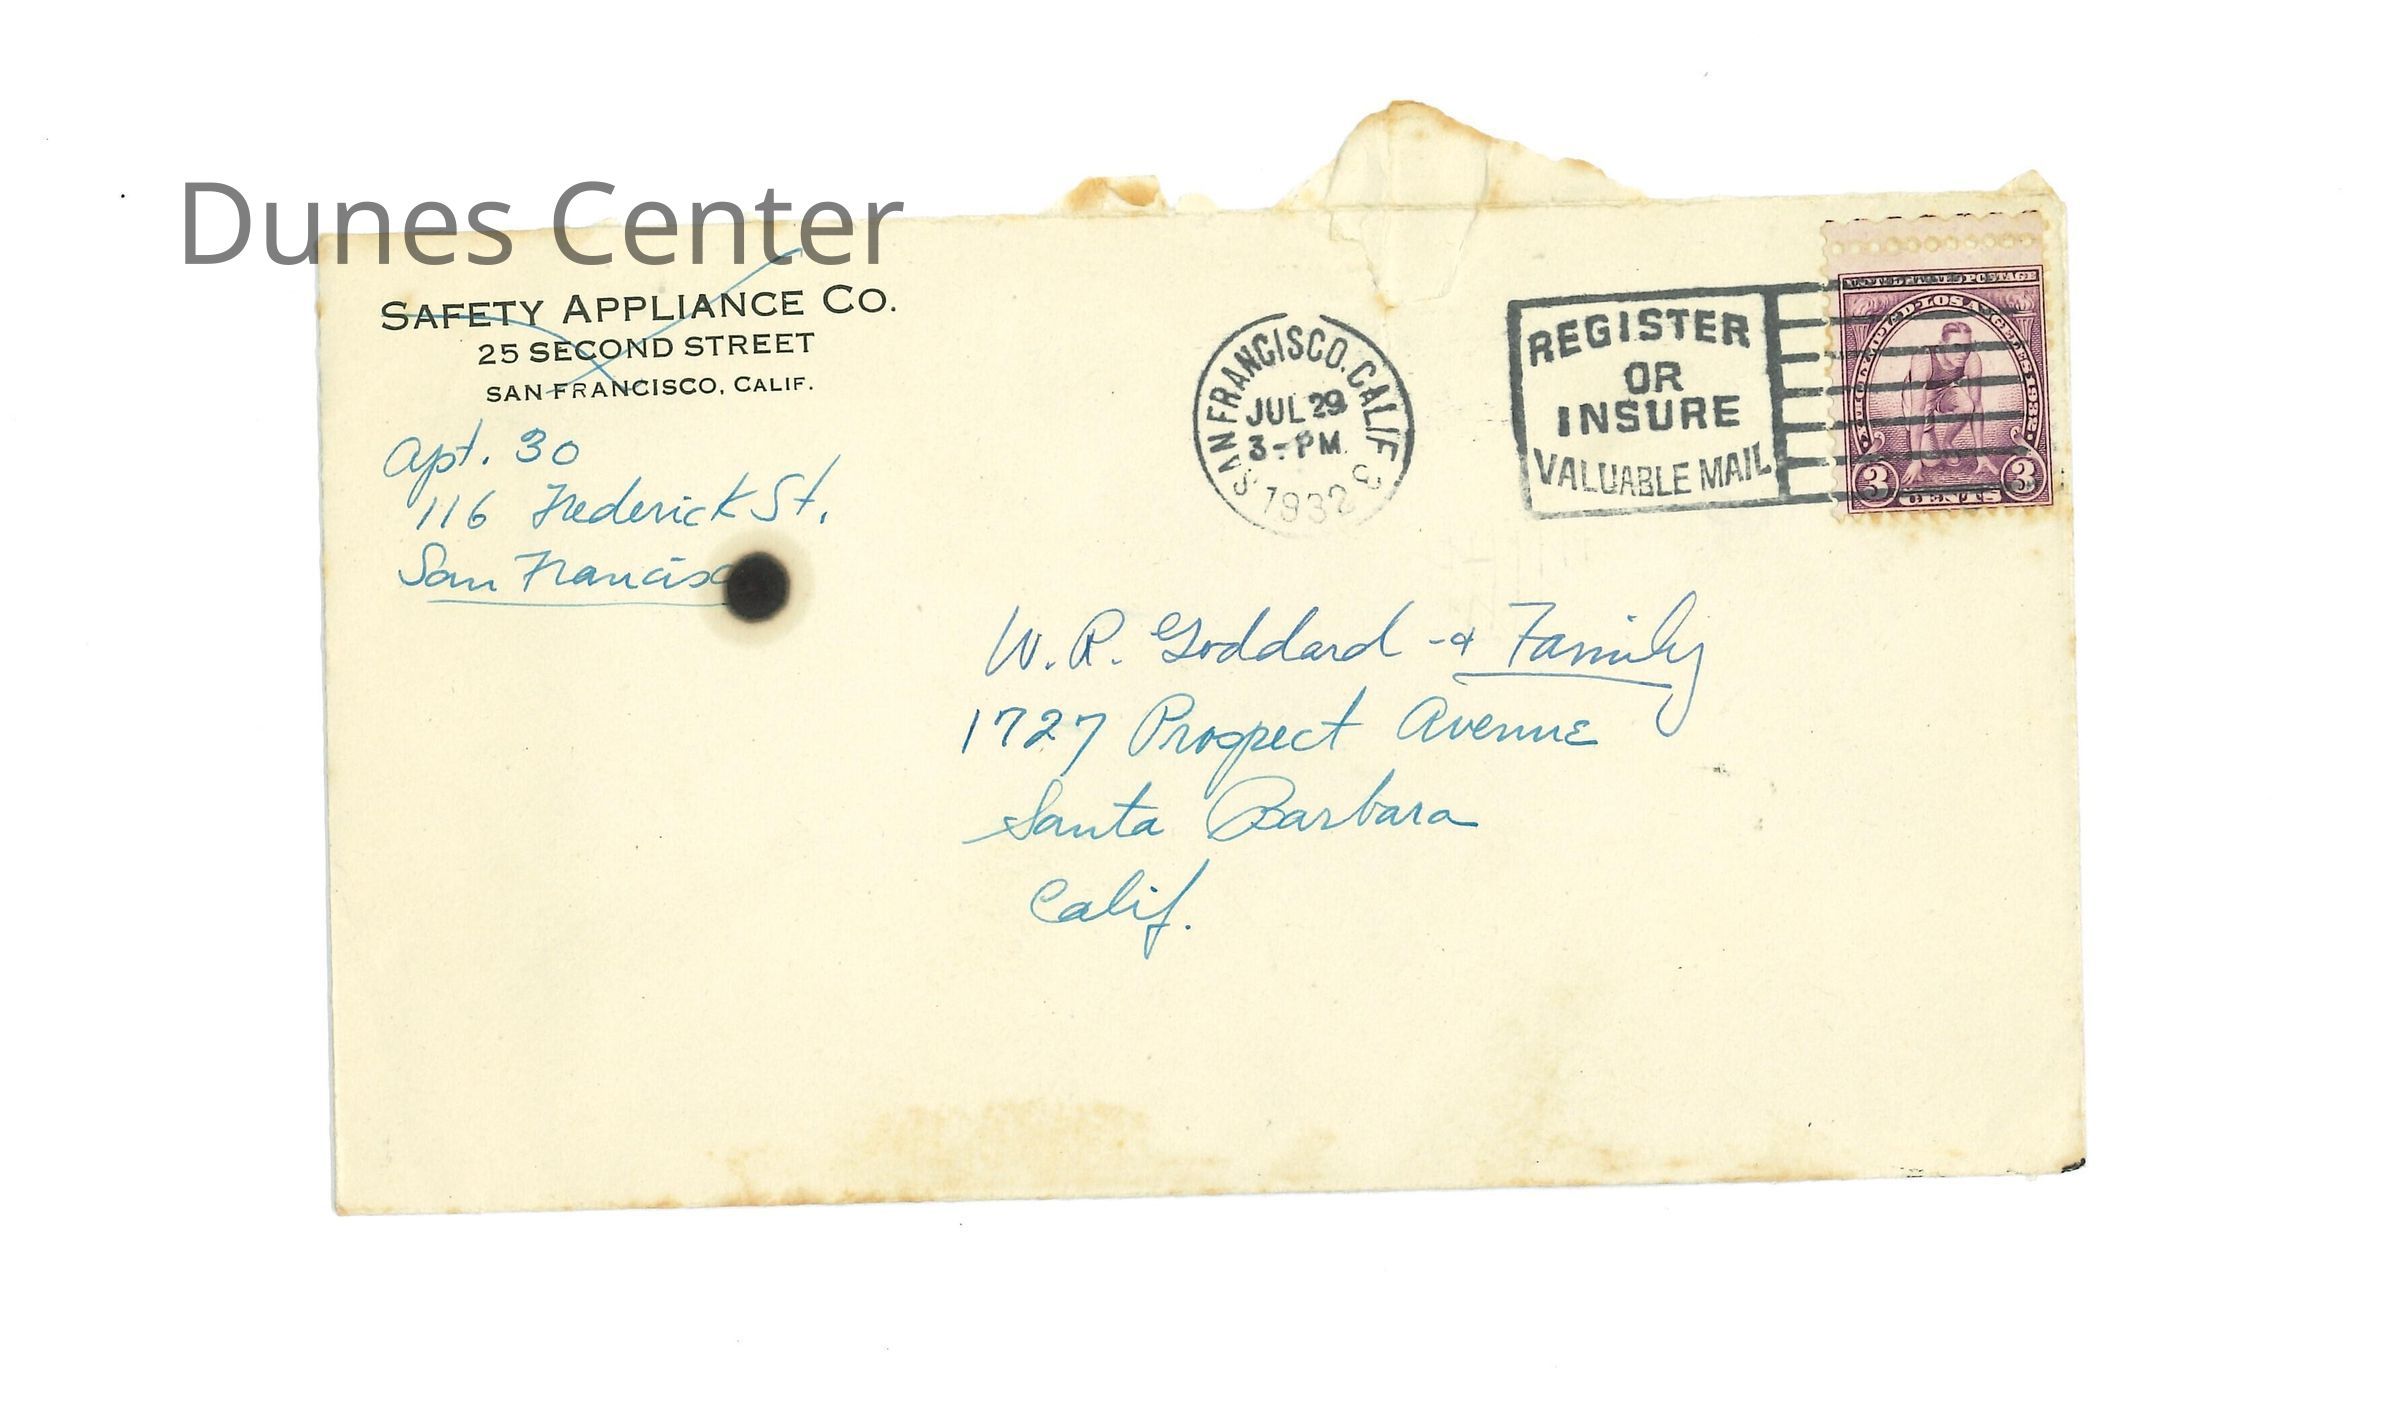 Dunes Center
SAFETY APPLIANCE CO.
25 SECOND STREET
SAN FRANCISCO, CALIF.
Apt. 30
116 Frederick St,
San Francisco
SAN FRANCISCO, CALIF.
JUL 29
3 - PM
1932
REGISTER
OR
INSURE
VALUABLE MAIL
UNITED STATES POSTAGE
XTH OLYMPIAD LOS ANGELES 1932
3 CENTS 3
W. R. Goddard - & Family
1727 Prospect Avenue
Santa Barbara
Calif.